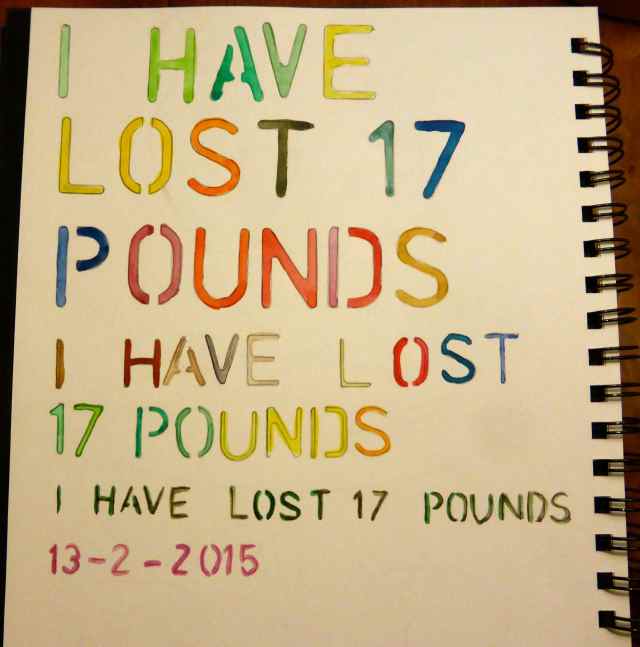 I HAVE
LOST 17
POUNDS
I HAVE LOST
17 POUNDS
I HAVE LOST 17 POUNDS
13-2-2015